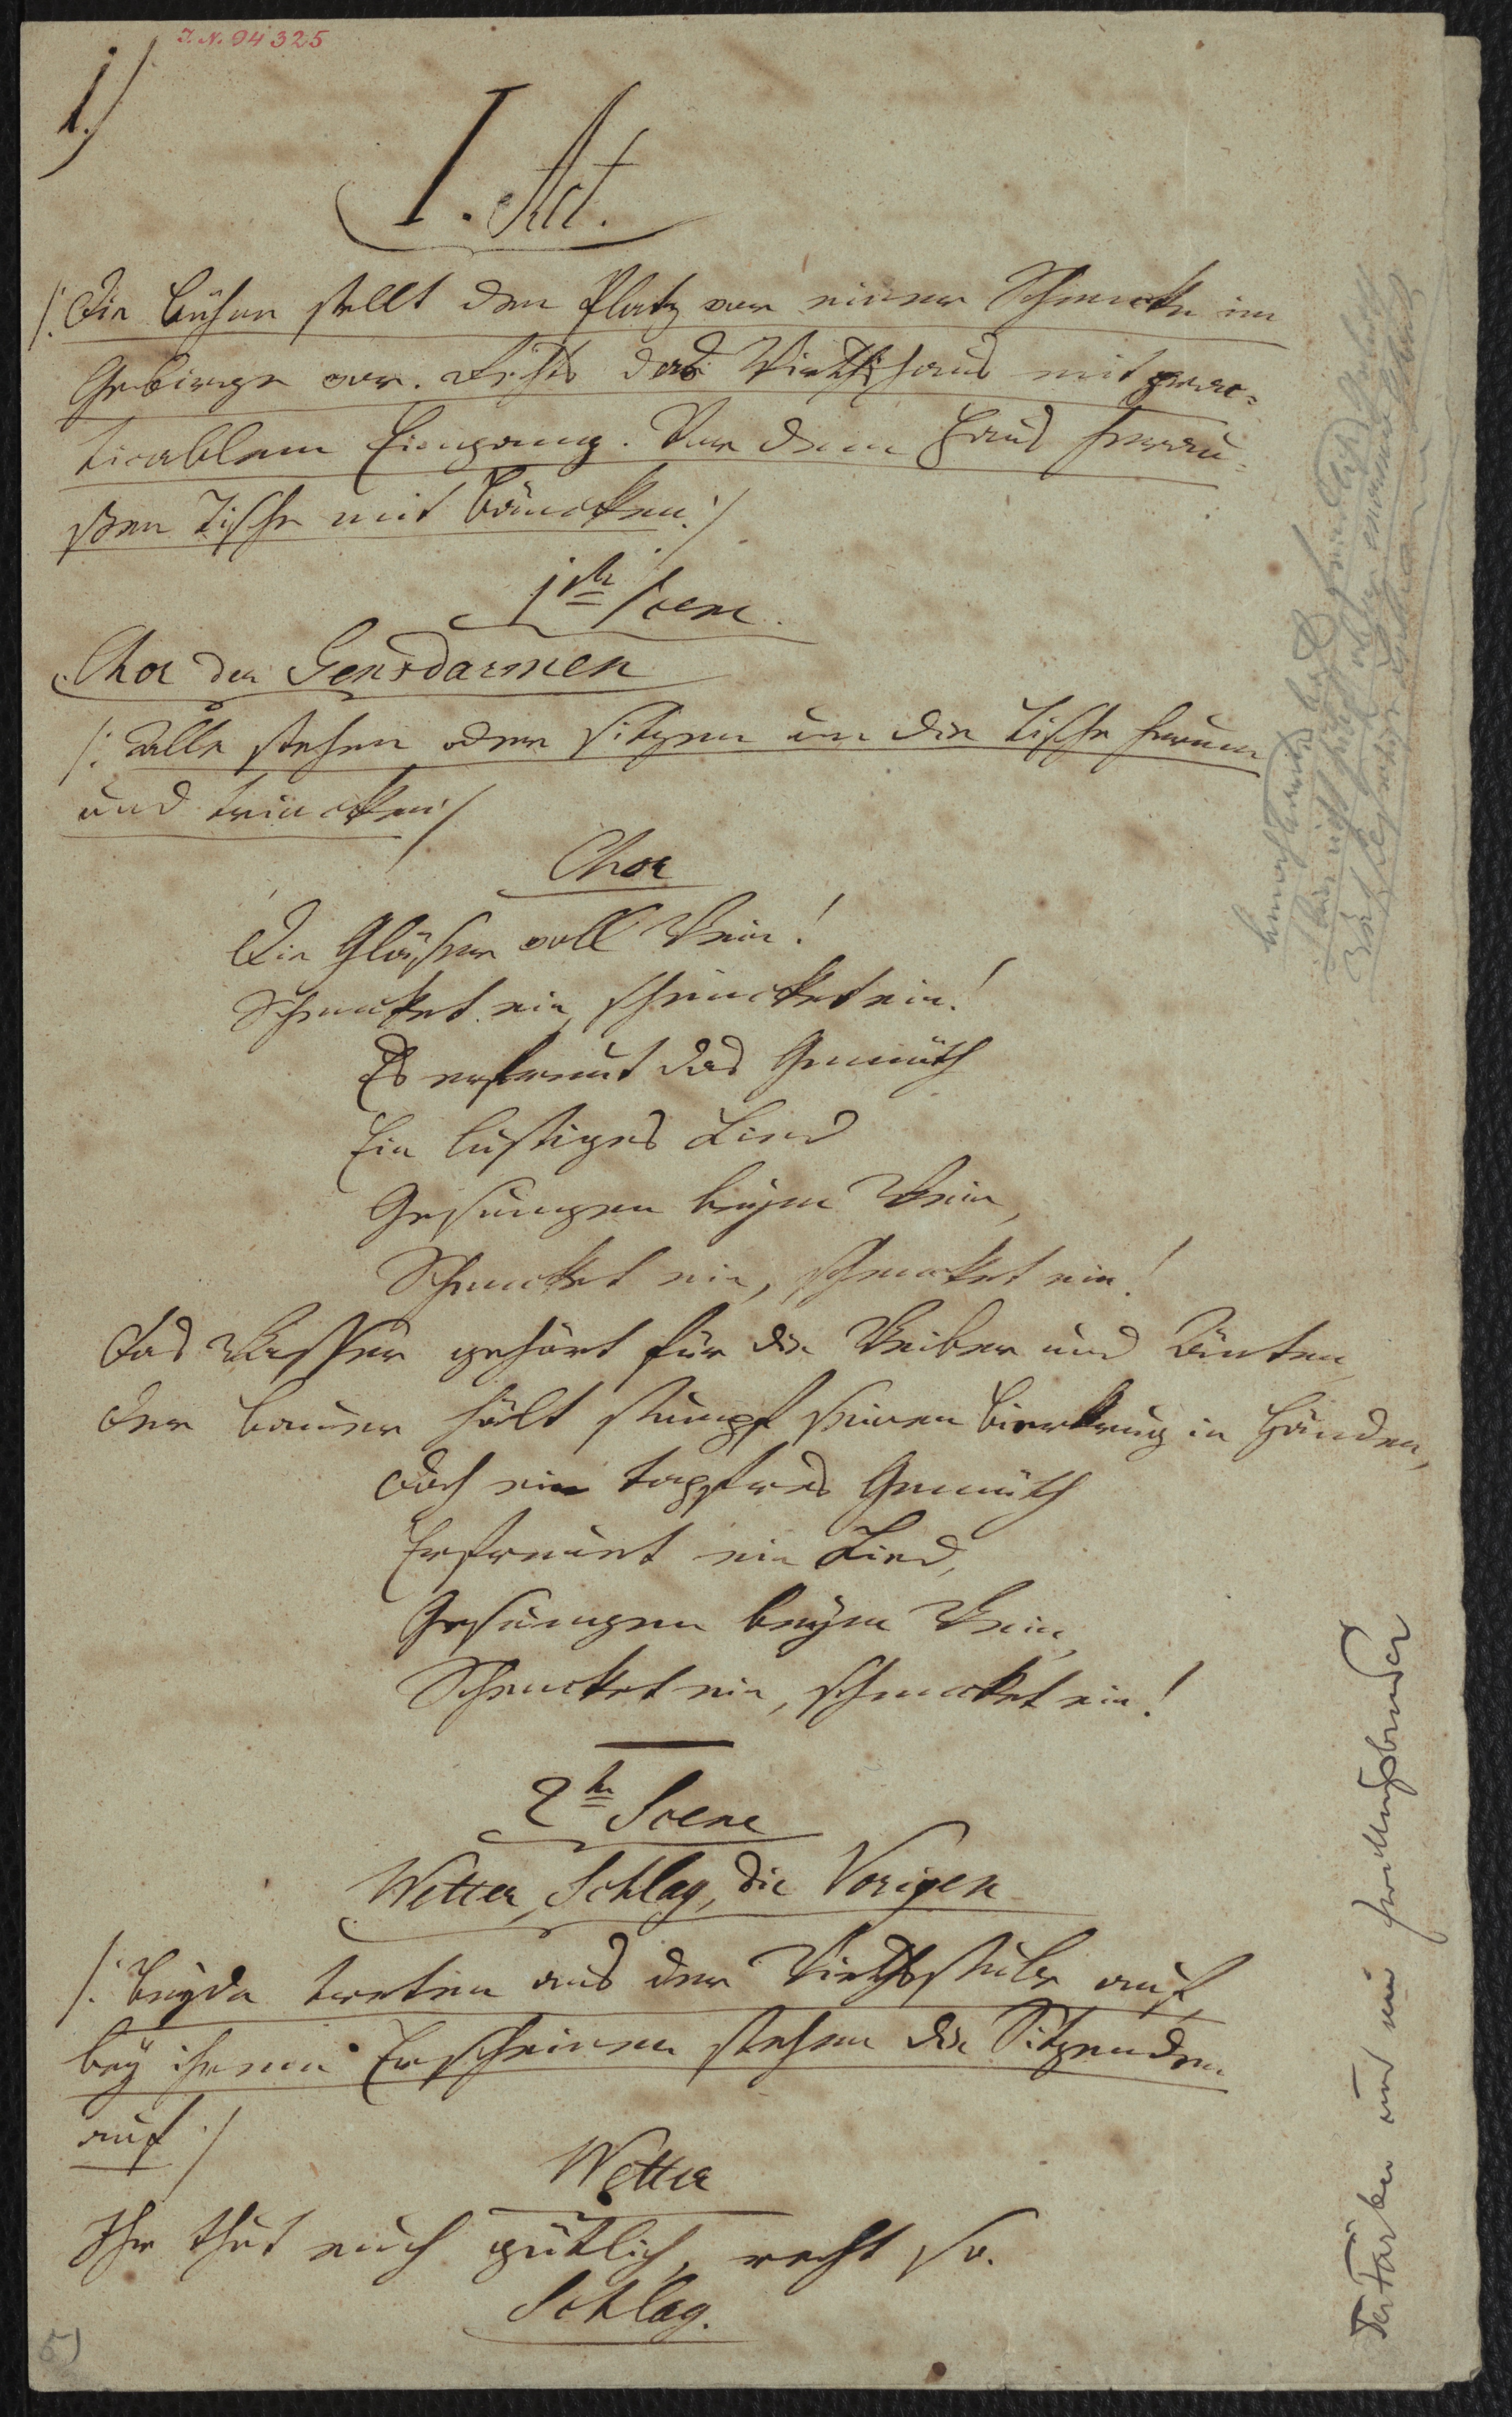 J.N. 94325
1.)
I. Act.
/: Die Bühne stellt den Platz vor einer Schencke im
Gebirge vor. Rechts das Wirthshaus mit prac-
ticablem Eingang. Vor dem Haus herau-
ßen Tische mit Bäncken. :/
1te Scene.
Chor der Gensdarmen
/: Alle stehen oder sitzen um die Tische herum
und trincken :/
Chor
Die Gläser voll Wein!
Schencket ein, schencket ein!
Es erfreut das Gemüth
Ein lustiges Lied
Gesungen beym Wein,
Schencket ein, schencket ein!
Das Wasser gehört für die Weiber und Änten,
Der Bauer hält stumpf seinen Bierkrug in Händen,
Doch ein tapfres Gemüth
Erfreuet ein Lied,
Gesungen beym Wein,
Schencket ein, schencket ein!
2te Scene
Wetter, Schlag, die Vorigen
/: Beyde treten aus der Wirthsstube auf,
bey ihrem Erscheinen stehen die Sitzenden
auf :/
Wetter
Ihr thut euch gütlich, recht so.
Schlag.
Der Färber und sein Zwillingsbruder